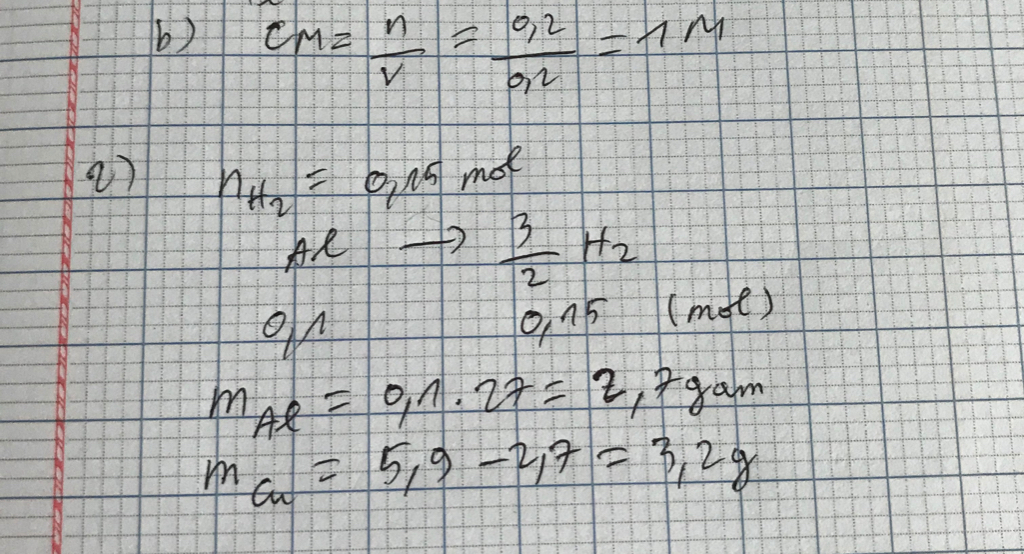 b) CM = n/v = 0,2/0,2 = 1 M
2) nH2 = 0,15 mol
Al → 3/2 H2
0,1 0,15 (mol)
mAl = 0,1 . 27 = 2,7 gam
mCu = 5,9 - 2,7 = 3,2g